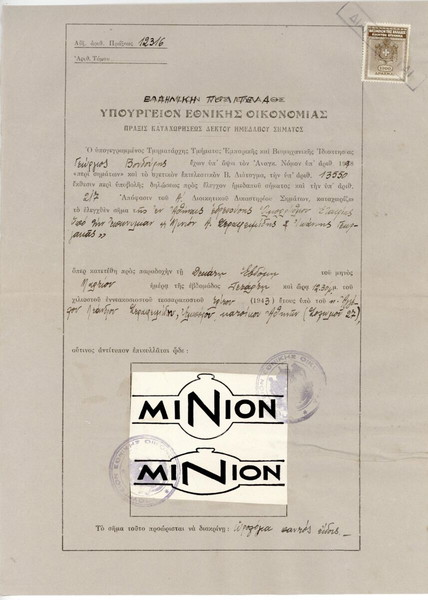 Αὔξ. ἀριθ. Πράξεως 12316
Ἀριθ. Τόμου
ΕΛΛΗΝΙΚΗ ΠΟΛΙΤΕΙΑ
ΥΠΟΥΡΓΕΙΟΝ ΕΘΝΙΚΗΣ ΟΙΚΟΝΟΜΙΑΣ
ΠΡΑΞΙΣ ΚΑΤΑΧΩΡΗΣΕΩΣ ΔΕΚΤΟΥ ΗΜΕΔΑΠΟΥ ΣΗΜΑΤΟΣ
Ὁ ὑπογεγραμμένος Τμηματάρχης Τμήματος Ἐμπορικῆς καὶ Βιομηχανικῆς Ἰδιοκτησίας
Γεώργιος ἔχων ὑπ' ὄψιν τὸν Ἀναγκ. Νόμον ὑπ' ἀριθ. 1998
«περὶ σημάτων» καὶ τὸ σχετικὸν ἐκτελεστικὸν Β. Διάταγμα, τὴν ὑπ' ἀριθ. 13550
ἔκθεσιν περὶ ὑποβολῆς δηλώσεως πρὸς ἔλεγχον ἡμεδαποῦ σήματος καὶ τὴν ὑπ' ἀριθ.
217 Ἀπόφασιν τοῦ Α. Διοικητικοῦ Δικαστηρίου Σημάτων, καταχωρίζει
τὸ ἐλεγχθὲν σῆμα τῆς ἐν Ἀθήναις ἑδρευούσης
ὑπὸ τὴν ἐπωνυμίαν « Μινιὸν
»
ὅπερ κατετέθη πρὸς παραδοχὴν τῇ Δεκάτῃ Ἑβδόμῃ τοῦ μηνὸς
Μαρτίου ἡμέρᾳ τῆς ἑβδομάδος Τετάρτῃ καὶ ὥρᾳ 12.30 μ. τοῦ
χιλιοστοῦ ἐννεακοσιοστοῦ τεσσαρακοστοῦ τρίτου (1943) ἔτους ὑπὸ τοῦ κ.
κατοίκου Ἀθηνῶν 27),
οὗτινος ἀντίτυπον ἐπικολλᾶται ὧδε :
MINION
MINION
Τὸ σῆμα τοῦτο προώρισται νὰ διακρίνῃ : παντὸς εἴδους